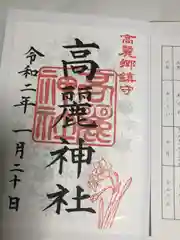 高麗郷鎮守
高麗神社
令和二年一月二十日